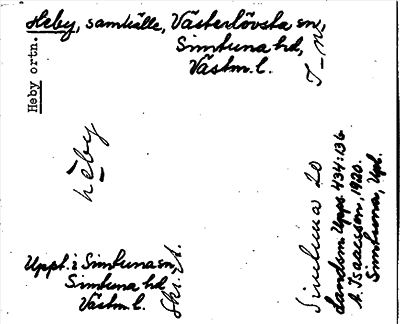 Heby ortn.
Heby, samhälle, Västerlövsta sn,
Simtuna hd,
Västm. l.
heby
Uppt. i Simtuna sn,
Simtuna hd
Västm. l.
Simtuna 20
Landsm. Upps. 434:136
A. Isaacsson, 1920.
Simtuna, Upl.